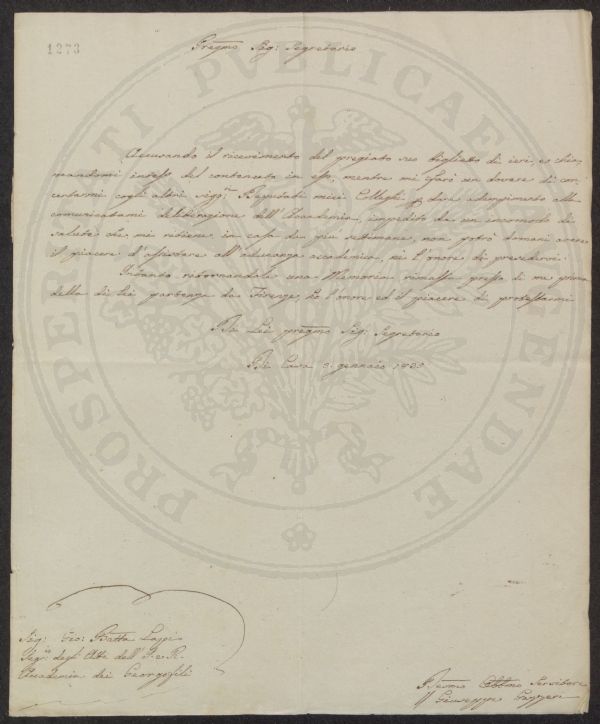 1273
Pregmo Sig: Segretario
Accusando il ricevimento del pregiato suo biglietto di ieri, e chia=
mandomi inteso del contenuto in esso, mentre mi farò un dovere di con=
certarmi cogli altri sigri Deputati miei Colleghi p dare adempimento alla
comunicatami deliberazione dell'Accademia, impedito da un incomodo di
salute che mi ritiene in casa da più settimane, non potrò domani avere
il piacere d'assistere all'adunanza accademica, nè l'onore di presedervi.
Intanto ritornandole una Memoria rimasta presso di me prima
della di lei partenza da Firenze, ho l'onore ed il piacere di protestarmi
Di Lei pregmo Sig: Segretario
Di Casa gennaio
Sig: Gio: Batta Lapi
Segrio degli Atti dell'I. e R.
Accademia dei Georgofili
Devmo Obbmo Servitore
Giuseppe Gazzeri
PROSPERITATI PVBLICAE AVGENDAE